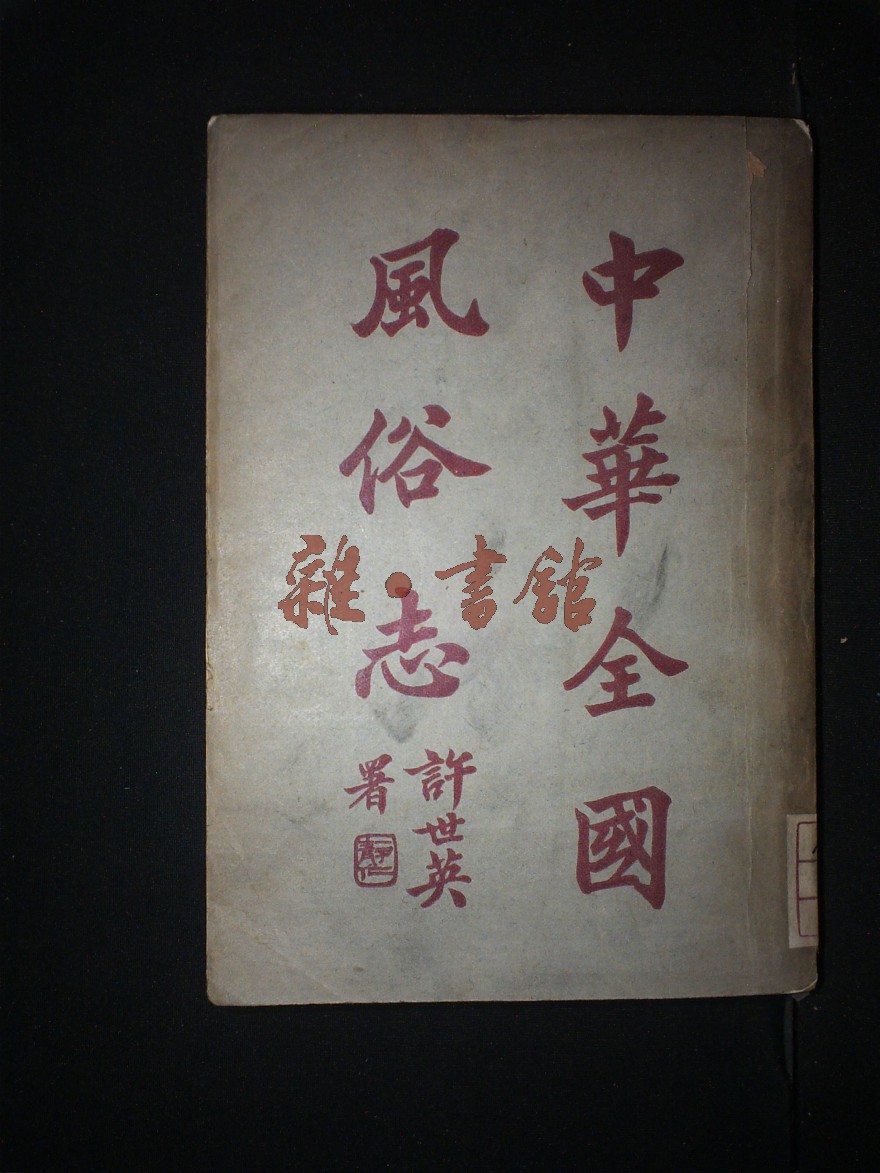 中華全國
風俗志
許世英
署
靜仁
雜·書館